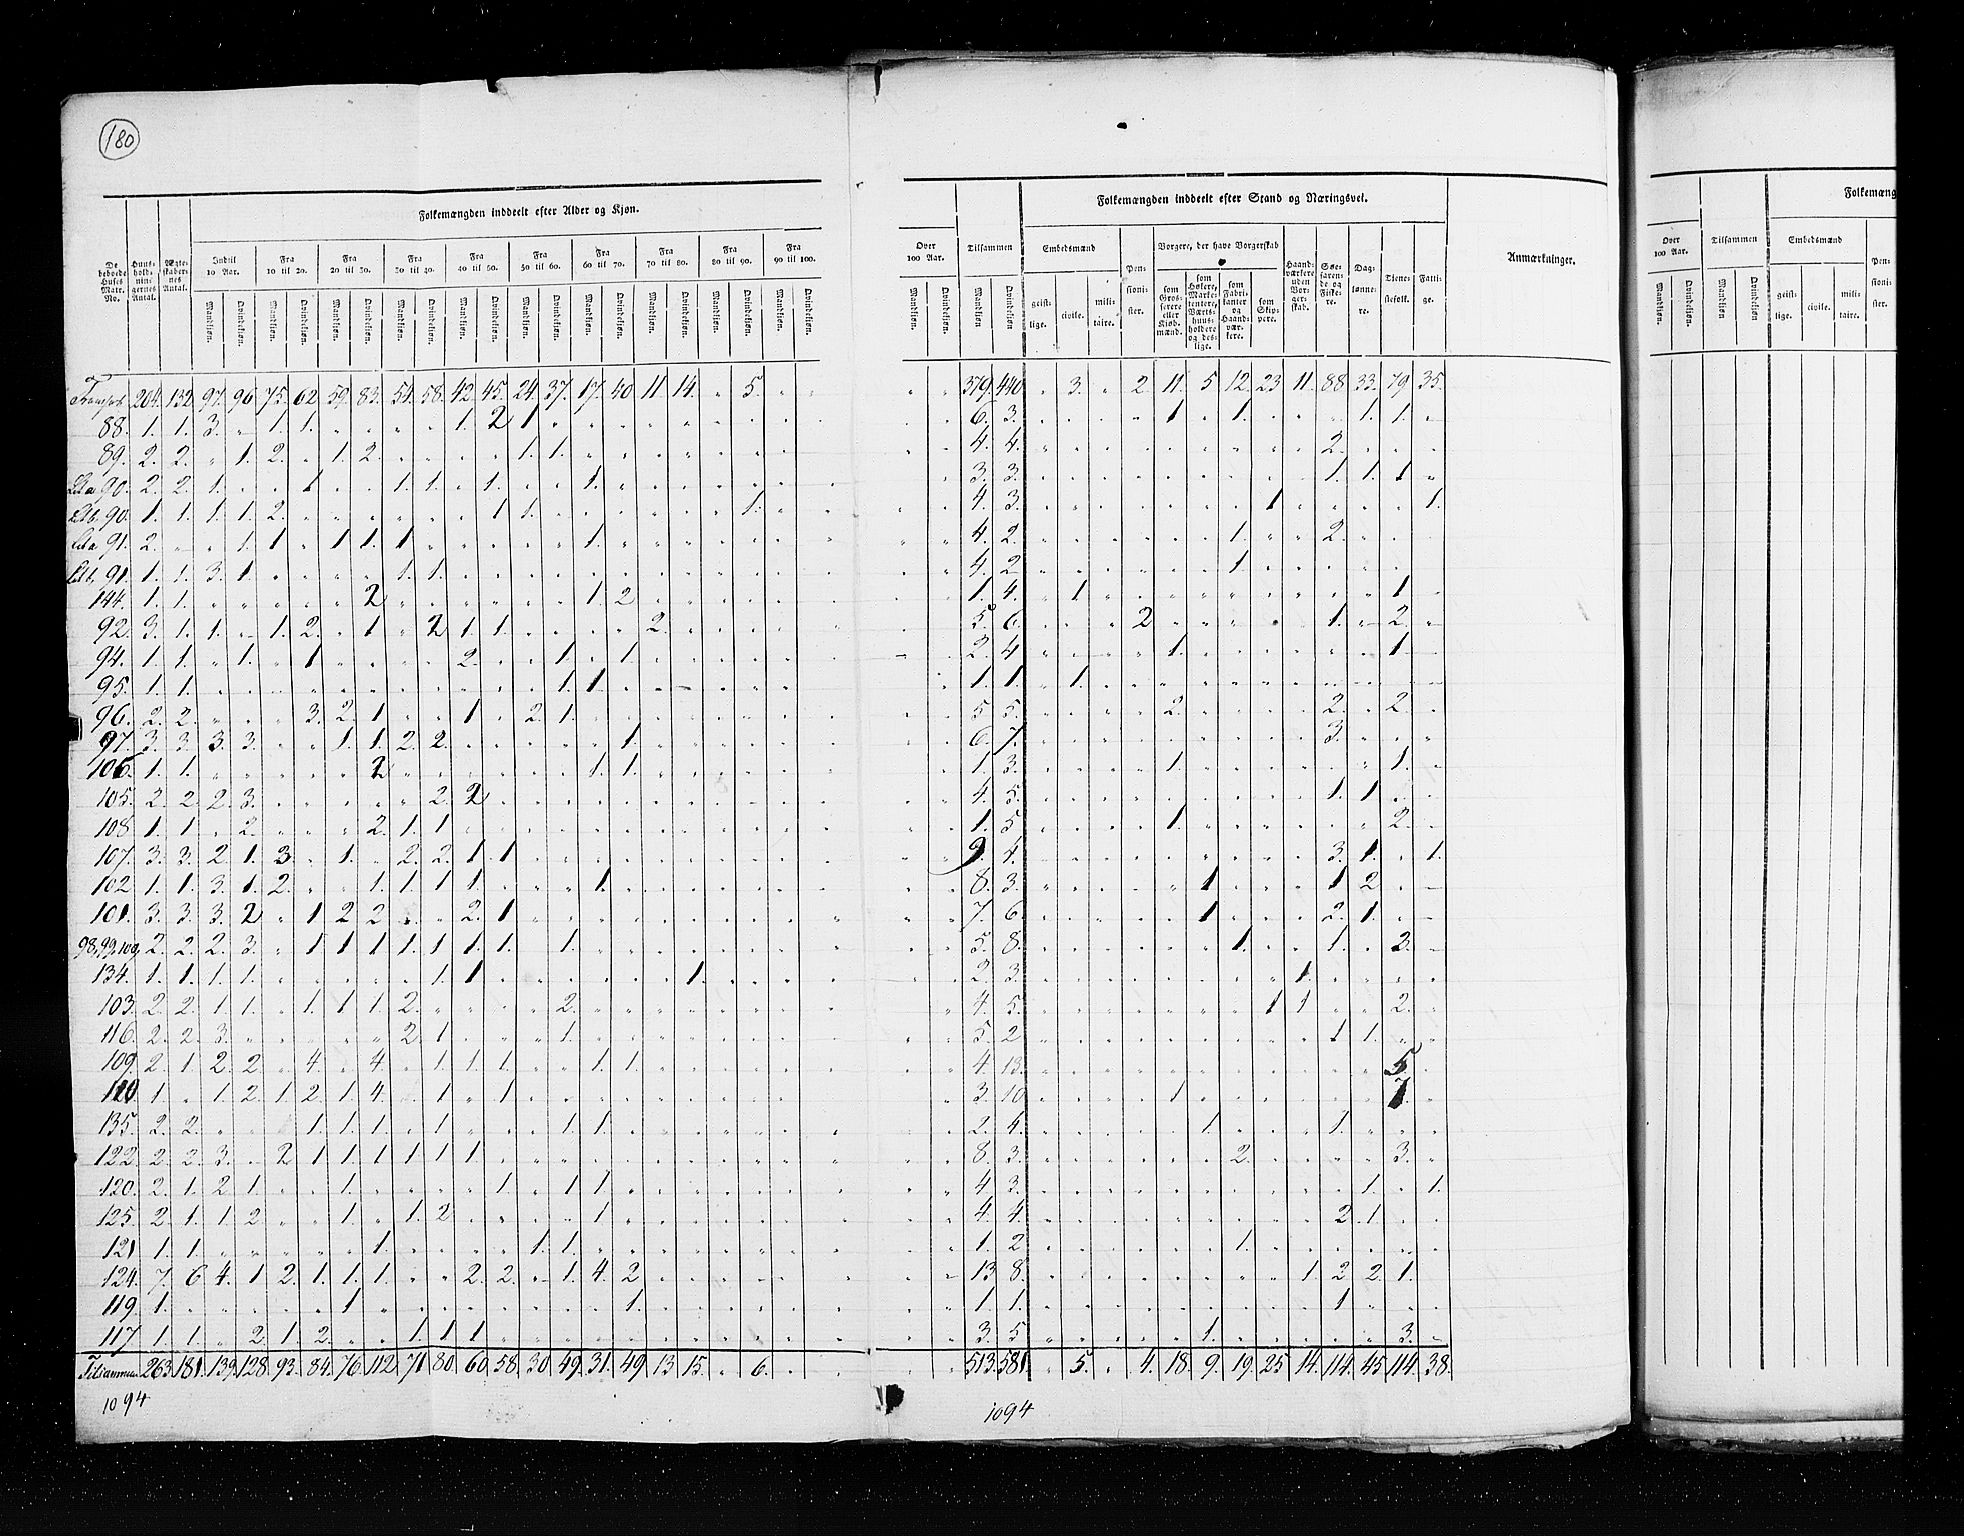 180
Folkemængden inddeelt efter Alder og Kjøn.
Tilsammen
Folkemængden inddeelt efter Stand og Næringsvei.
Anmærkninger.
De beboede Huses Matr. No.
Huus-holdningernes Antal.
Ægteskabernes Antal.
Indtil 10 Aar.
Fra 10 til 20.
Fra 20 til 30.
Fra 30 til 40.
Fra 40 til 50.
Fra 50 til 60.
Fra 60 til 70.
Fra 70 til 80.
Fra 80 til 90.
Fra 90 til 100.
Over 100 Aar.
Mandkjøn. Qvindekjøn.
Embedsmænd
geistlige. civile. militaire.
Pensionister.
Borgere, der have Borgerskab
som Grosserere eller Kjøbmænd.
som Høkere, Marketentere, Værtshuusholdere og deslige.
som Fabrikanter og Haandværkere.
som Skippere.
Haandværkere uden Borgerskab.
Søefarende og Fiskere.
Daglønnere.
Tjenestefolk.
Fattige.
Transport 204. 132. 97. 96. 75. 62. 59. 83. 54. 58. 42. 45. 24. 37. 17. 40. 11. 14. " 5. " " " " 379. 440. " 3. " 2. 11. 5. 12. 23. 11. 88. 33. 79. 35.
88. 1. 1. 3. " 1. 1. " " " " 1. 2 1 " 6. 3. 1 " 1. 1. 1.
89. 2. 2. " 1. 2. " 1. 2. " " " " 1. 1. 4. 4. 2.
Lit a 90. 2. 2. 1. " " 1 " " 1. 1. " 1. " " 1. 3. 3. 1. 1. 1
Lit b. 90. 1. 1. 1. 1. 2. " " " " " " 1 1. 1. 4. 3. 1 1.
Lit a 91. 2. " " 1. 1 " 1 1. 1 " " " " " 1. 4. 2. 1. 2.
Lit b. 91. 1. 1. 3. 1. " " " " 1. 1. 4. 2 1.
144. 1. 1. " " " " " 2 " " " " " " 1. 2 1. 4. 1 1
92. 3. 1. 1. " 1. 2. " 1 " 2 1. 1. " " " " 2. 5. 6. 2 1. 2.
94. 1. 1. " 1. " 1 " " " " 2. " " 1. " 1. 2. 4 1. 1
95. 1. 1. " " " " " " " " " " " 1. 1. 1. 1. 1.
96. 2. 2. " " " 3. 2. 1 " " 1 " 2. 1. 5 5. 2. 2. 2.
97. 3. 3. 3. 3. " " 1. 1. 2. 2. " " " " " 1. 6. 7. 3.
106. 1. 1. " " " " " 2 " " " " " " 1. 1. 1. 3. 1. 1.
105. 2. 2. 2. 3. " " " " " 2. 2 4. 5. 1. 1
108 1. 1 " 2. " " " 2. 1. 1 1. 5 1. 2.
107. 3. 3. 2. 1. 3. " 1. " 2. 2. 1 1 9. 4. 3. 1. " 1.
102 1. 1. 3. 1. 2. " " 1. 1. 1 1. " " " 1. 8. 3. 1 1 2
101. 3. 3. 3. 2 " 1 2 2. " " 2. 1 7. 6. 1 2. 1.
98, 99, 100, 2. 2. 2. 3. " 1 1 1 1. 1 1. 1. " 1. 5. 8. 1. 1. 2.
134. 1. 1. 1. 1. " " " " " 1. 1 " " " " " " 1. 2. 3. 1.
103. 2. 2. 1. 1. " 1. 1 1. 2. " " " " 2. 4. 5. 1 1 2.
116. 2. 2. 3. " " " " " 2 1. " " " 1. 5. 2 1 1.
109. 2. 1. 2. 2. " 4. " 4. " 1. 1. 1. " " 1. 1. 4. 13. 5.
110. 1. " 1. 2. 1. 2. 1. 4. " 1. " 1. 3. 10. 1 7.
135. 2. 2. " " " 1. 1. 1. " 1. " " " 1. 1. 2. 4. 1. 1.
122. 2. 2. 3. " 2 1. 1. 1 1. 1. 1. 8. 3. 2. 3.
120. 2. 1. 2. 1. " " 1. " " " " 1. " 1. 1. 4. 3. 1. " 1.
125. 2. 1. 1. 2. " " 1. " 1. 2 " " " " 1. 4. 4. 2. 1.
121 1. 1. " " " " " 1. " " " " 1. 1. 1. 2. 1.
124. 7. 6 4. 1 2. 1. 1. 1. " " 2. 2. " 1. 4. 2 13 8. 1. 2 2. 1.
119. 1. " " " " " 1 " " " " " " " " 1. 1. 1. 1
117. 1. 1. " 2. 1. 2. " " 1. 1 1 3. 5. 1. 3.
Tilsammen 263. 181. 139. 128. 93. 84. 76. 112. 71. 80. 60. 58. 30. 49. 31. 49. 13. 15. " 6. " " " " 513. 581. " 5. " 4. 18. 9. 19. 25 14. 114. 45. 114. 38.
1094
1094
Folkemæng
Over 100 Aar.
Tilsammen
Embedsmænd
Mandkjøn. Qvindekjøn. Mandkjøn Qvindekjøn
geistlige. civile. militaire. Pensionister.